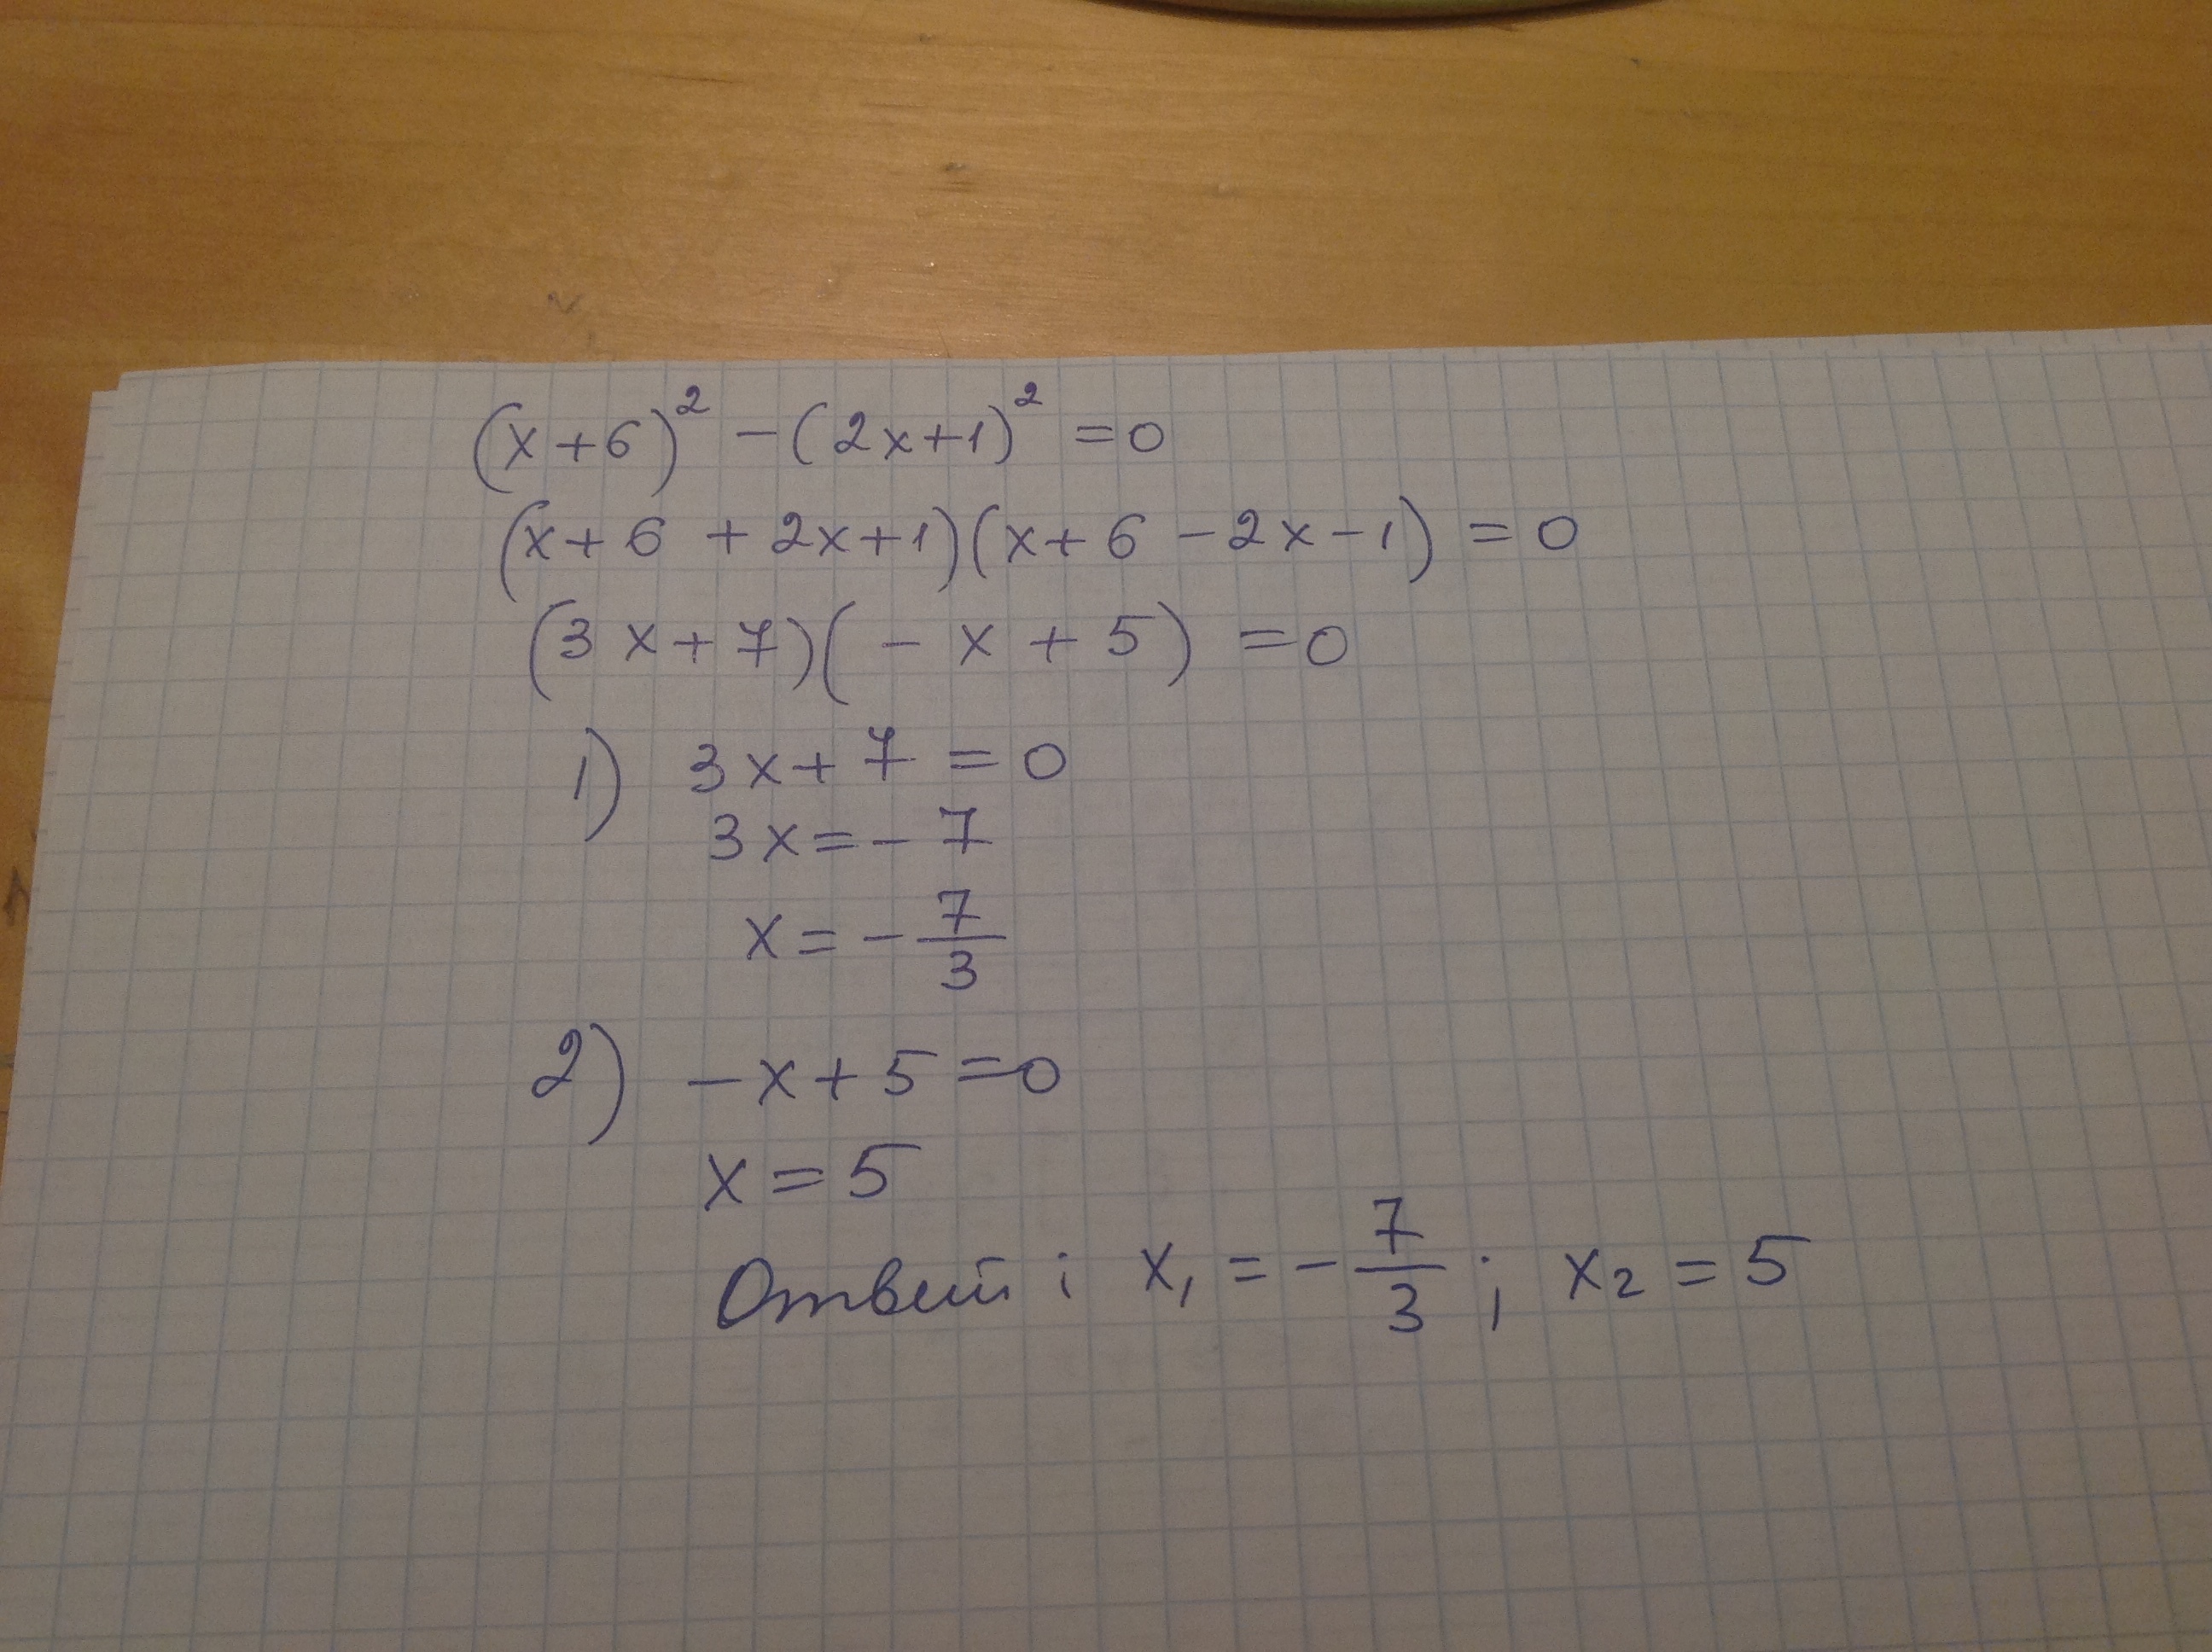 (x+6)² -(2x+1)² =0
(x+6 +2x+1)(x+6 -2x-1) =0
(3x+7)(-x+5) =0
1) 3x+7=0
3x=-7
x=-7/3
2) -x+5=0
x=5
Ответ: x₁=-7/3; x₂=5